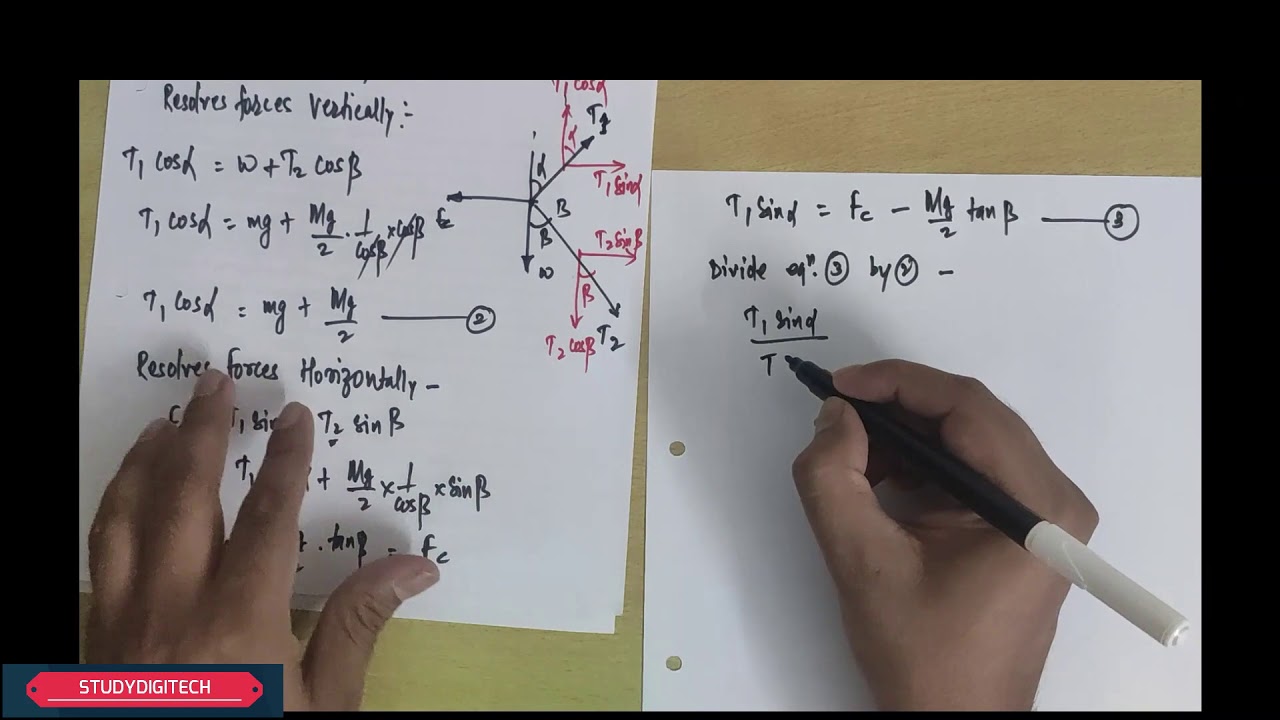 Resolves forces Vertically :-
T₁ cosα = W + T₂ cosβ
T₁ cosα = mg + Mg/2 . 1/cosβ × cosβ
T₁ cosα = mg + Mg/2 —— ②
Resolves forces Horizontally -
T₁ sin T₂ sinβ
T₁ + Mg/2 × 1/cosβ × sinβ
. tanβ = Fc
T₁ cosα
T₁
α
α
T₁ sinα
Fc
β
β
W
T₂ sinβ
β
T₂ cosβ
T₂
T₁ sinα = Fc - Mg/2 tanβ —— ③
Divide eqⁿ. ③ by ② -
T₁ sinα
T
STUDYDIGITECH